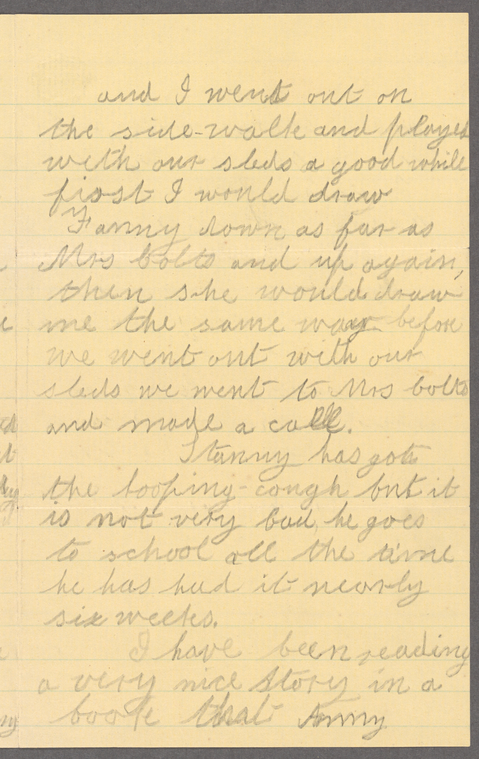 and I went out on
the side-walk and played
with our sleds a good while
first I would draw
Fanny down as far as
Mrs bolts and up again,
then she would draw
me the same way before
we went out with our
sleds we went to Mrs bolts
and made a call.
Stanny has got
the hooping-cough but it
is not very bad, he goes
to school all the time
he has had it nearly
six weeks.
I have been reading
a very nice Story in a
book that Anny